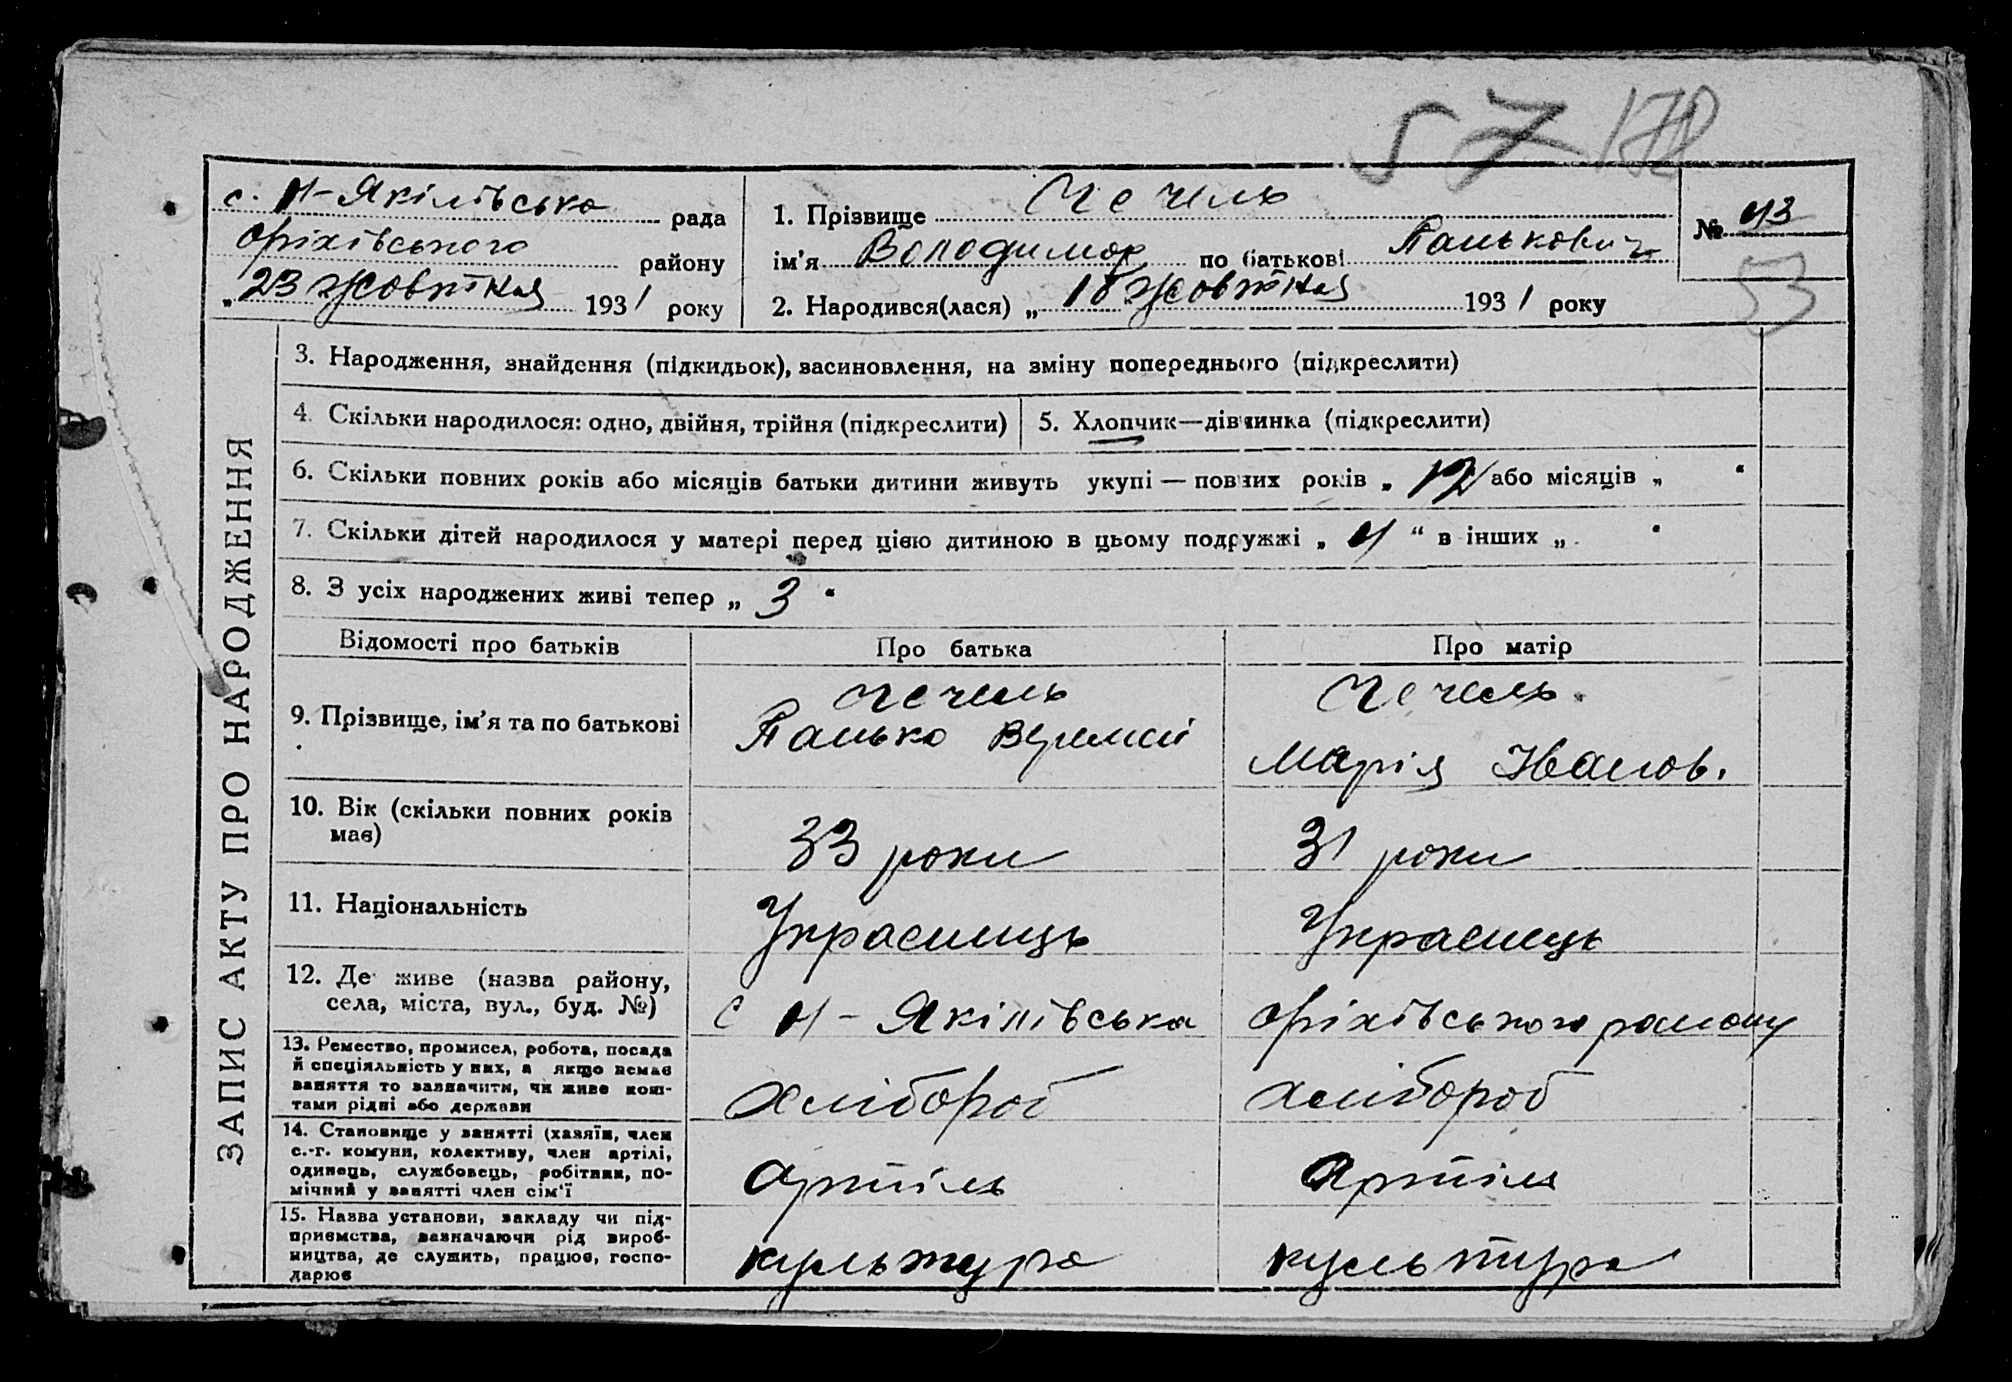 57 178
с. Н-Якілівська рада
Оріхівського району
„23 жовтня 1931 року
1. Прізвище Чечель
ім'я Володимор по батькові Панькович
2. Народився(лася) „ 18 жовтня 1931 року
№ 43
53
ЗАПИС АКТУ ПРО НАРОДЖЕННЯ
3. Народження, знайдення (підкидьок), засиновлення, на зміну попереднього (підкреслити)
4. Скільки народилося: одно, двійня, трійня (підкреслити)
5. Хлопчик—дівчинка (підкреслити)
6. Скільки повних років або місяців батьки дитини живуть укупі — повних років „ 12 або місяців „ “
7. Скільки дітей народилося у матері перед цією дитиною в цьому подружжі „ 4 “ в інших „ “
8. З усіх народжених живі тепер „ 3 “
Відомості про батьків Про батька Про матір
9. Прізвище, ім'я та по батькові
Чечель
Панько
Чечель
Марія Іванов.
10. Вік (скільки повних років
має)
33 роки
31 роки
11. Національність
Украєинць
Украєнець
12. Де живе (назва району,
села, міста, вул., буд. №)
с Н-Якілівська
Оріхівського району
13. Ремество, промисел, робота, посада
й спеціяльність у них, а якщо немає
заняття то зазначити, чи живе кош-
тами рідні або держави
хлібороб
хлібороб
14. Становище у занятті (хазяїн, член
с.-г. комуни, колективу, член артілі,
одинець, службовець, робітник, по-
мічний у занятті член сім'ї
Артіль
Артіль
15. Назва установи, закладу чи під-
приємства, зазначаючи рід вироб-
ництва, де служить, працює, госпо-
дарює
культура
культура